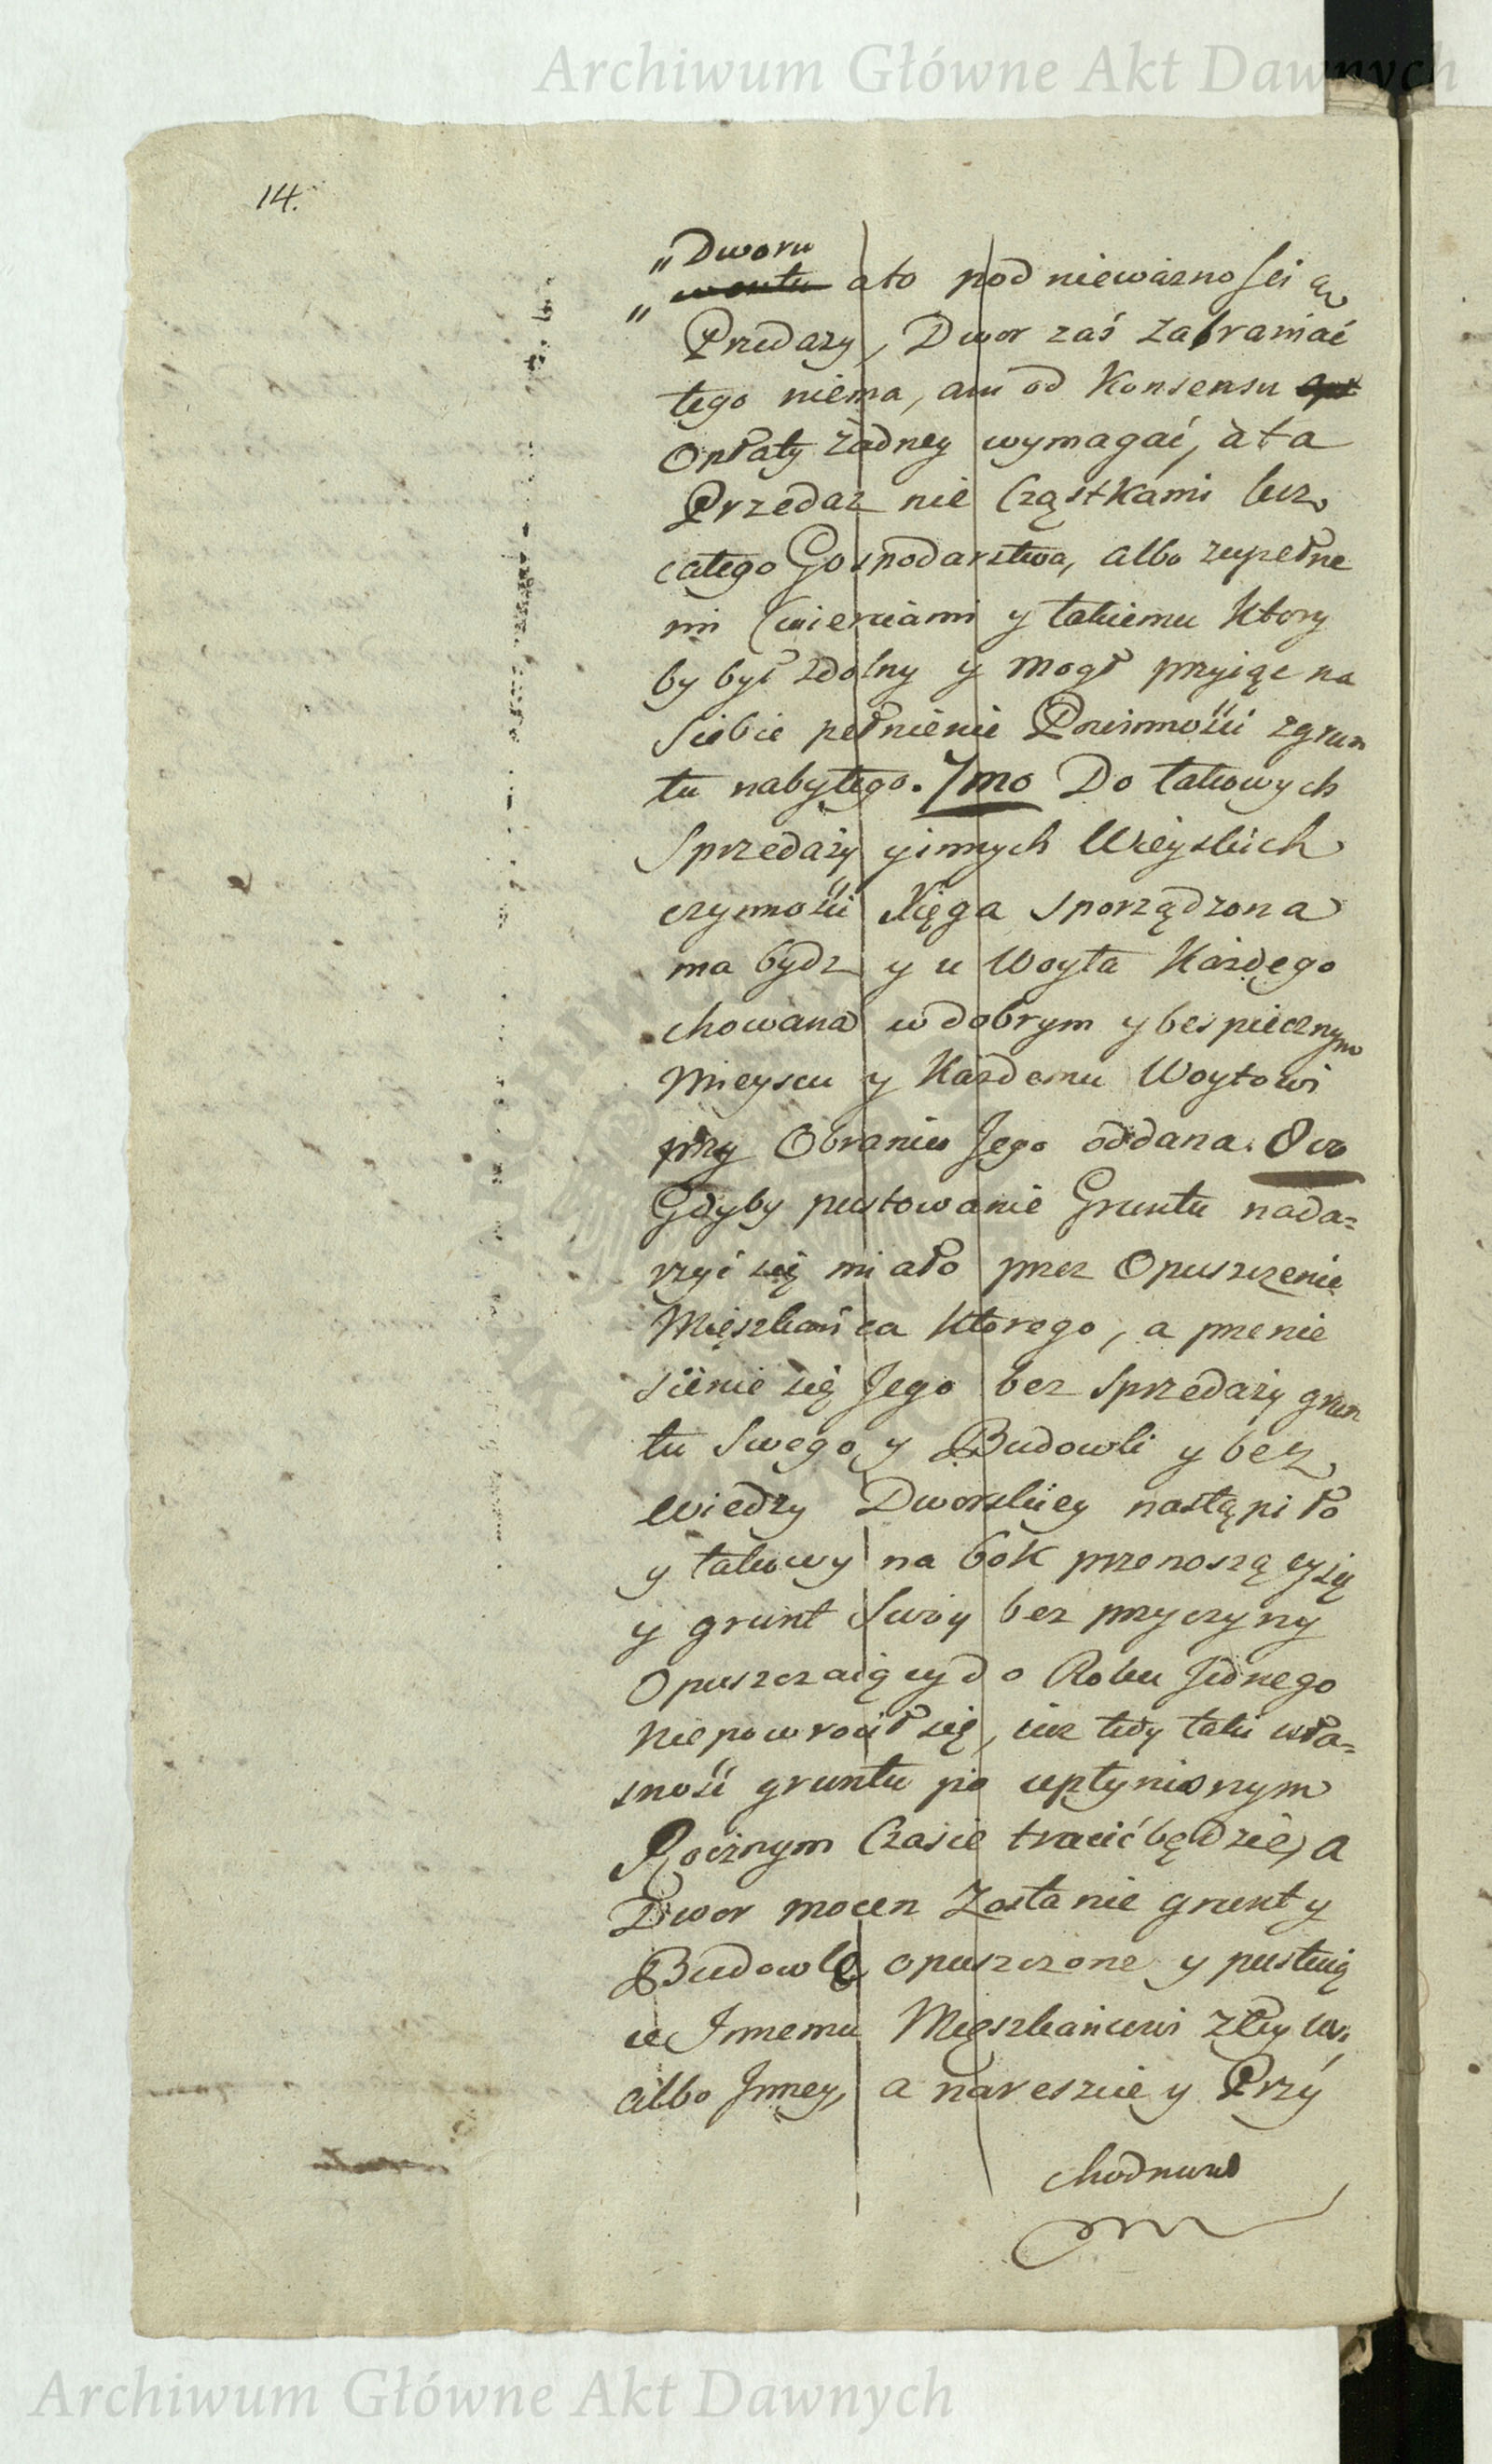 Archiwum Główne Akt Dawnych
14.
„ Dworu
„ ~~wontu~~ ato pod nieważnością
Przedaży, Dwor zaś zabraniać
tego niema, ani od Konsensu ~~opł~~
Opłaty żadney wymagać, a ta
Przedaz nie Cząstkami lecz
całego Gospodarstwa, albo zupełne
mi Cwierciami y takiemu ktory
by był zdolny y mogł przyiąc na
siebie pełnienie Powinności zgrun
tu nabytego. 7mo Do takowych
Sprzedaży yinnych Wieyskich
czynności Xięga sporządzona
ma bydz y u Woyta Każdego
chowana w dobrym y bespiecznym
Mieyscu y Każdemu Woytowi
przy Obraniu Jego oddana. 8vo
Gdyby pustowanie Gruntu nada=
rzyć się miało przez Opuszczenie
Mięszkańca ktorego, a przenie
sienie się Jego bez Sprzedaży grun
tu Swego y Budowli y bez
wiedzy Dworskiey nastąpiło
y takowy na bok przenoszący się
y grunt Swoy bez przyczyny
Opuszczaiący do Roku Jednego
Niepowrocił się, iuz tedy taki wła=
sność gruntu po upłynionym
Rocznym Czasie tracić będzie, a
Dwor mocen zostanie grunt y
Budowle opuszczone y pustuią
ce Innemu Mięszkańcowi z tey wsi
albo Inney, a nareszcie y Przy
chodniowi
Archiwum Główne Akt Dawnych